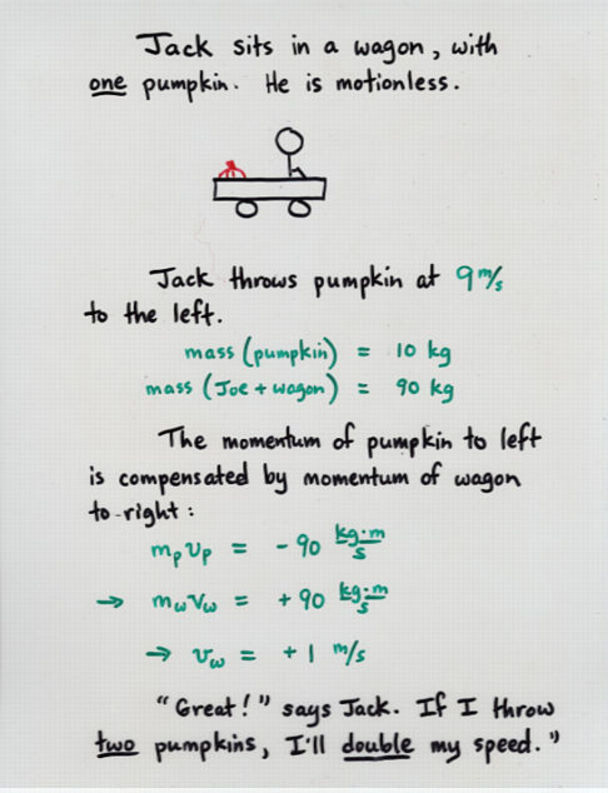 Jack sits in a wagon, with
one pumpkin. He is motionless.
Jack throws pumpkin at 9 m/s
to the left.
mass (pumpkin) = 10 kg
mass (Joe + wagon) = 90 kg
The momentum of pumpkin to left
is compensated by momentum of wagon
to right:
mpvp = - 90 kg·m/s
→ mwvw = + 90 kg·m/s
→ vw = + 1 m/s
"Great!" says Jack. If I throw
two pumpkins, I'll double my speed."